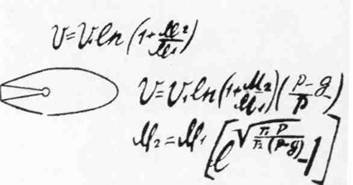 V=V₁ln(1+M₂/M₁)
V=V₁ln(1+M₂/M₁)(p-g/p)
M₂=M₁[e^√(… p/(p-g))-1]